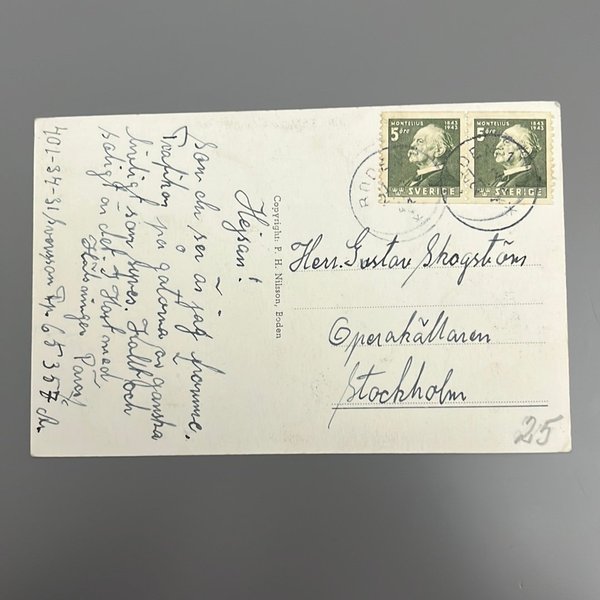 MONTELIUS 1843 1943
5 öre
SVERIGE
MONTELIUS 1843 1943
5 öre
SVERIGE
Hejsan!
som du ser är jag
Trafiken på gatorna är ganska
livligt som synes. Kallt och
ruskigt är det. Hast med
Hälsningar
401-34-31/Svensson Fp 65357
Copyright: P. H. Nilsson, Boden
Herr. Gustav Skogström
Operakällaren
Stockholm
25